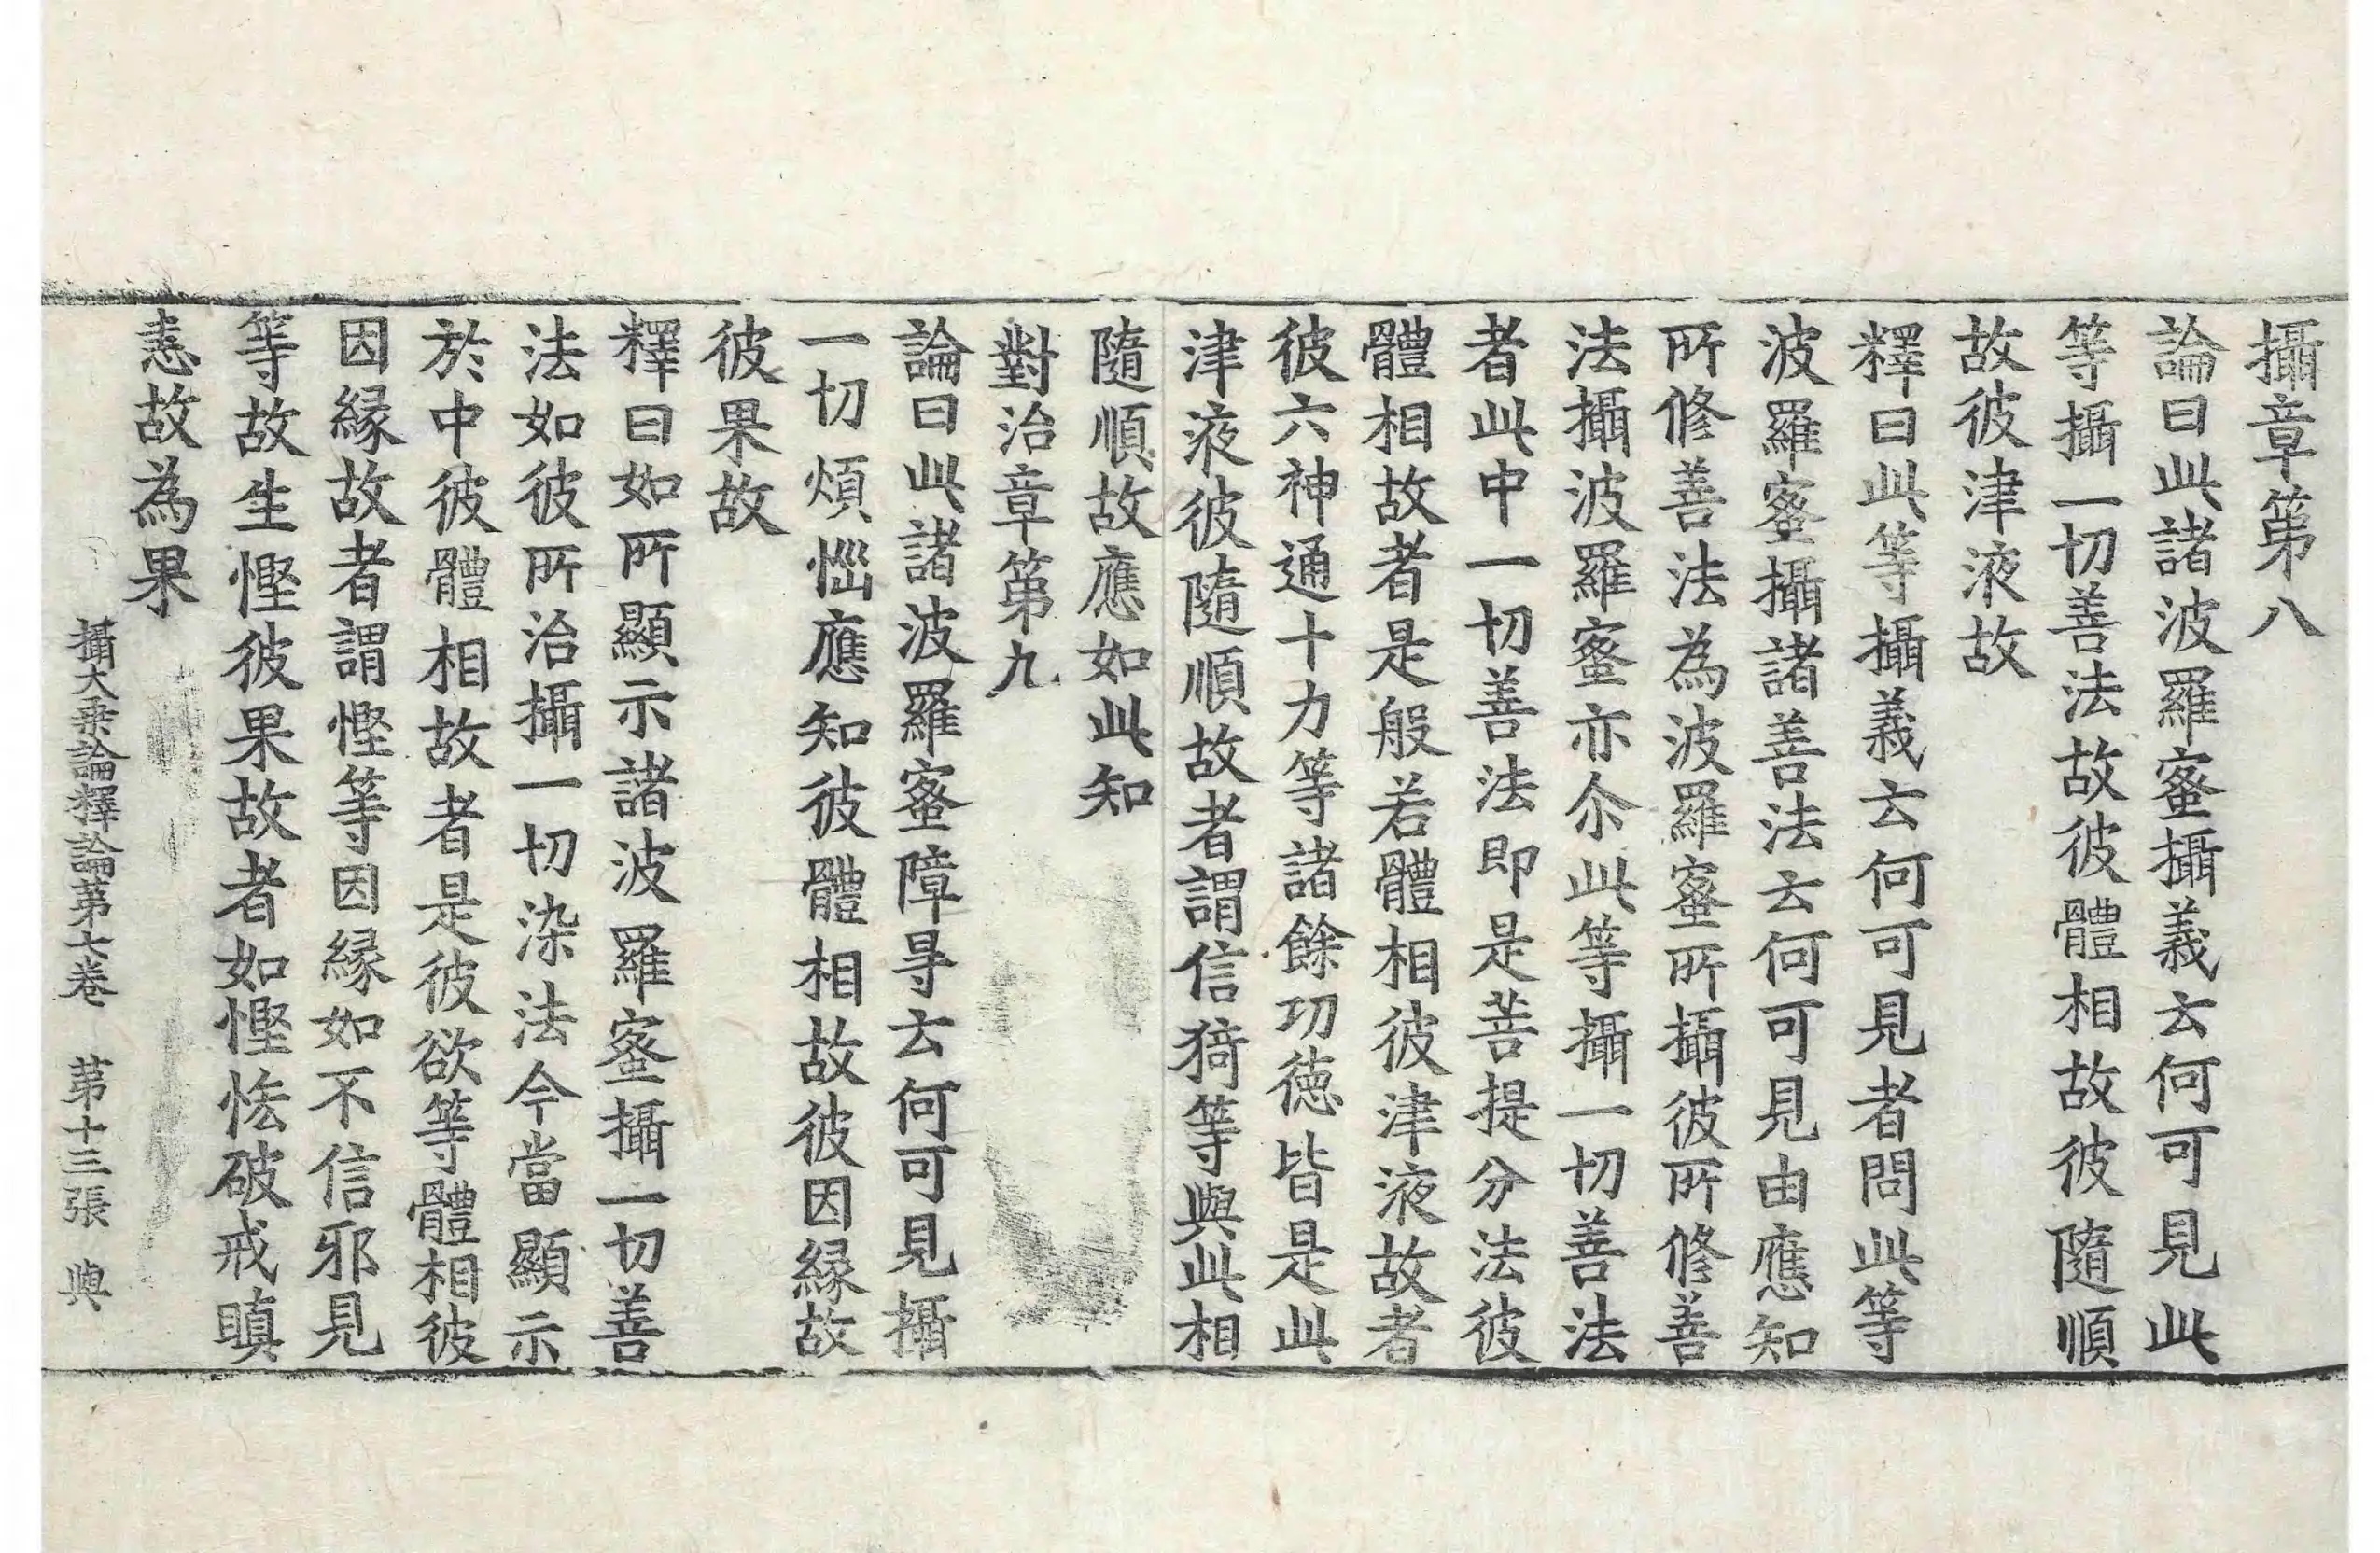 攝章第八
論曰此諸波羅蜜攝義云何可見此
等攝一切善法故彼體相故彼隨順
故彼津液故
釋曰此等攝義云何可見者問此等
波羅蜜攝諸善法云何可見由應知
所修善法為波羅蜜所攝彼所修善
法攝波羅蜜亦尒此等攝一切善法
者此中一切善法即是菩提分法彼
體相故者是般若體相彼津液故者
彼六神通十力等諸餘功德皆是此
津液彼隨順故者謂信猗等與此相
隨順故應如此知
對治章第九
論曰此諸波羅蜜障㝵云何可見攝
一切煩惱應知彼體相故彼因緣故
彼果故
釋曰如所顯示諸波羅蜜攝一切善
法如彼所治攝一切染法今當顯示
於中彼體相故者是彼欲等體相彼
因緣故者謂慳等因緣如不信邪見
等故生慳彼果故者如慳恡破戒瞋
恚故為果
攝大乗論釋論第七卷 第十三張 與